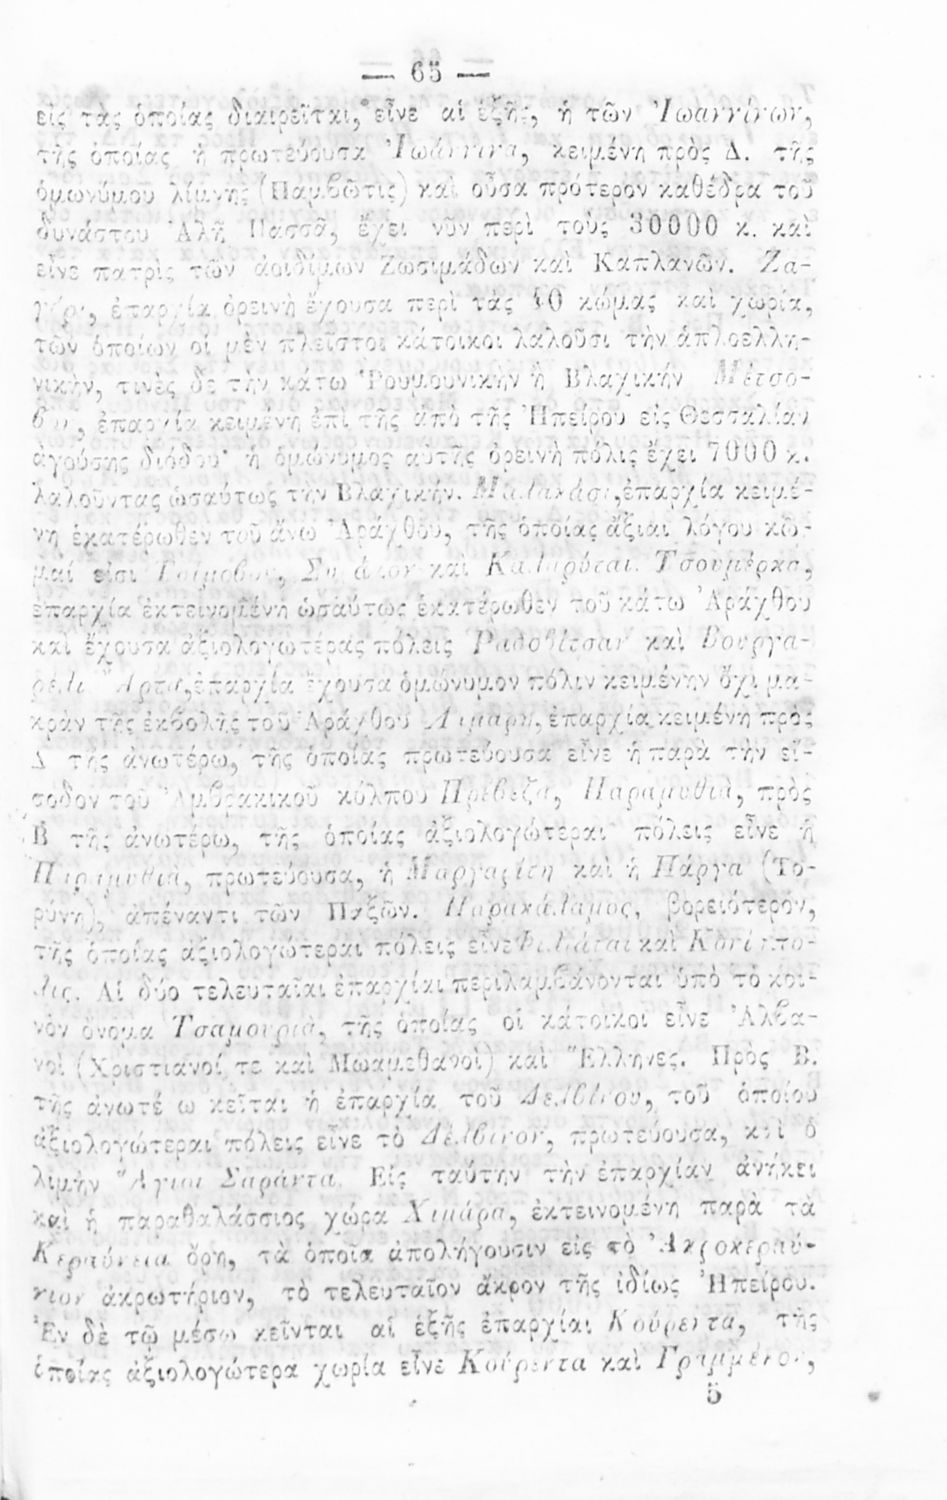 — 65 —
εἰς τὰς ὁποίας διαιρεῖται, εἶνε αἱ ἑξῆς, ἡ τῶν Ἰωαννίνων,
τῆς ὁποίας ἡ πρωτεύουσα Ἰωάννινα, κειμένη πρὸς Δ. τῆς
ὁμωνύμου λίμνης (Παμβῶτις) καὶ οὖσα πρότερον καθέδρα τοῦ
δυνάστου Ἀλῆ Πασσᾶ, ἔχει νῦν περὶ τοὺς 30000 κ. καὶ
εἶνε πατρὶς τῶν ἀοιδίμων Ζωσιμάδων καὶ Καπλανῶν. Ζα-
ἐπαρχία ὀρεινὴ ἔχουσα περὶ τὰς 40 κώμας καὶ χωρία,
τῶν ὁποίων οἱ μὲν πλεῖστοι κάτοικοι λαλοῦσι τὴν ἁπλοελλη-
νικὴν, τινὲς δὲ τὴν κάτω Ῥουμουνικὴν ἢ Βλαχικήν Μέτσο-
βον, ἐπαρχία κειμένη ἐπὶ τῆς ἀπὸ τῆς Ἠπείρου εἰς Θεσσαλίαν
ἀγούσης διόδου· ἡ ὁμώνυμος αὐτῆς ὀρεινὴ πόλις ἔχει 7000 κ.
λαλοῦντας ὡσαύτως τὴν Βλαχικήν. Μαλακάσι, ἐπαρχία κειμέ-
νη ἑκατέρωθεν τοῦ ἄνω Ἀράχθου, τῆς ὁποίας ἄξιαι λόγου κῶ-
μαί εἰσι καὶ Καλαρύται. Τσουμέρκα,
ἐπαρχία ἐκτεινομένη ὡσαύτως ἑκατέρωθεν τοῦ κάτω Ἀράχθου
καὶ ἔχουσα ἀξιολογωτέρας πόλεις Ραδοβίτσαν καὶ Βουργα-
ρέλι Ἄρτα, ἐπαρχία ἔχουσα ὁμώνυμον πόλιν κειμένην ὄχι μα-
κρὰν τῆς ἐκβολῆς τοῦ Ἀράχθου Λάμαρη, ἐπαρχία κειμένη πρὸς
Δ τῆς ἀνωτέρω, τῆς ὁποίας πρωτεύουσα εἶνε ἡ παρὰ τὴν εἴ-
σοδον τοῦ Ἀμβρακικοῦ κόλπου Πρέβεζα, Παραμυθιὰ, πρὸς
Β τῆς ἀνωτέρω, τῆς ὁποίας ἀξιολογώτεραι πόλεις εἶνε ἡ
Παραμυθιὰ, πρωτεύουσα, ἡ Μαργαρίτη καὶ ἡ Πάργα (Το-
ρύνη), ἀπέναντι τῶν Παξῶν. Παρακάλαμος, βορειότερον,
τῆς ὁποίας ἀξιολογώτεραι πόλεις εἶνε Φιλιάται καὶ Κονίσπο-
λις. Αἱ δύο τελευταῖαι ἐπαρχίαι περιλαμβάνονται ὑπὸ τὸ κοι-
νὸν ὄνομα Τσαμουριὰ, τῆς ὁποίας οἱ κάτοικοι εἶνε Ἀλβα-
νοὶ (Χριστιανοί τε καὶ Μωαμεθανοί) καὶ Ἕλληνες. Πρὸς Β.
τῆς ἀνωτέ ω κεῖται ἡ ἐπαρχία τοῦ Δελβίνου, τοῦ ὁποίου
ἀξιολογώτεραι πόλεις εἶνε τὸ Δέλβινον, πρωτεύουσα, καὶ ὁ
λιμὴν Ἅγιοι Σαράντα. Εἰς ταύτην τὴν ἐπαρχίαν ἀνήκει
καὶ ἡ παραθαλάσσιος χώρα Χιμάρα, ἐκτεινομένη παρὰ τὰ
Κεραύνεια ὄρη, τὰ ὁποῖα ἀπολήγουσιν εἰς τὸ Ἀκροκεραύ-
νιον ἀκρωτήριον, τὸ τελευταῖον ἄκρον τῆς ἰδίως Ἠπείρου.
Ἐν δὲ τῷ μέσῳ κεῖνται αἱ ἑξῆς ἐπαρχίαι Κούρεντα, τῆς
ὁποίας ἀξιολογώτερα χωρία εἶνε Κούρεντα καὶ Γραμμένον,
5